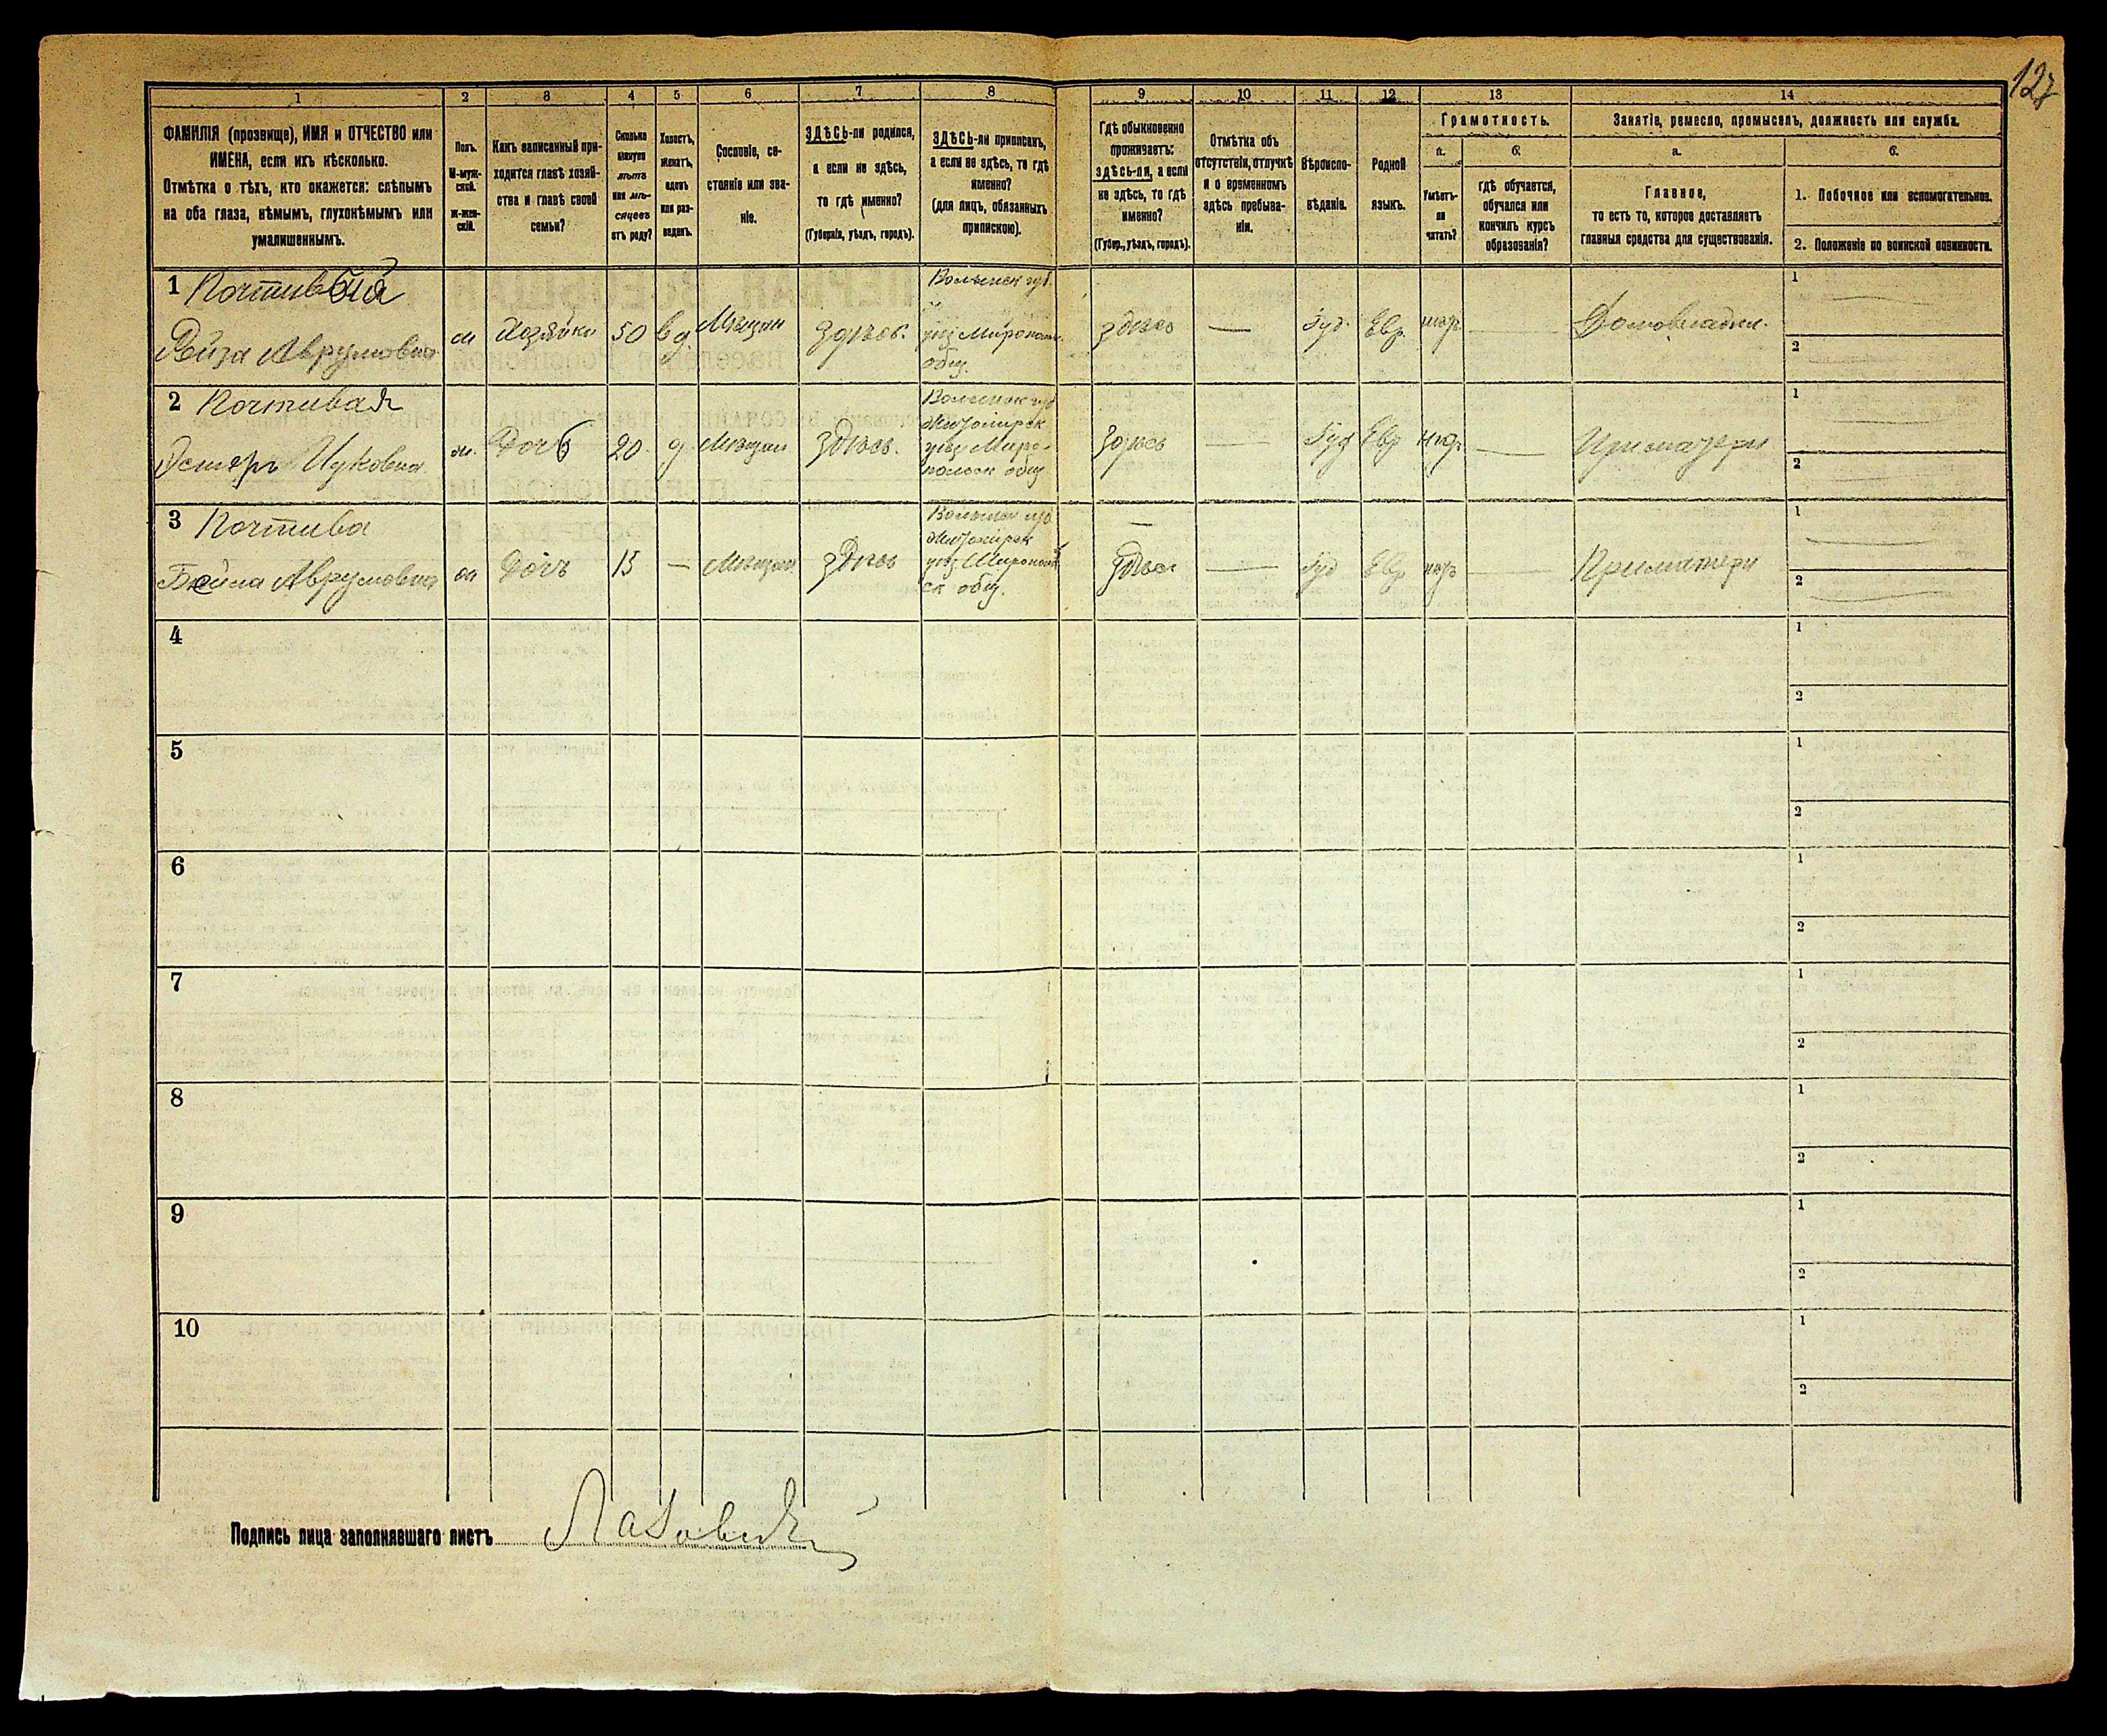 127
1 2 3 4 5 6 7 8 9 10 11 12 13 14
ФАМИЛІЯ (прозвище), ИМЯ и ОТЧЕСТВО или
ИМЕНА, если ихъ нѣсколько.
Отмѣтка о тѣхъ, кто окажется: слѣпымъ
на оба глаза, нѣмымъ, глухонѣмымъ или
умалишеннымъ.
Полъ.
М-муж-
ской.
ж-жен-
скій.
Какъ записанный при-
ходится главѣ хозяй-
ства и главѣ своей
семьи?
Сколько
минуло
лѣтъ
или мѣ-
сяцевъ
отъ роду?
Холостъ,
женатъ,
вдовъ
или раз-
веденъ.
Сословіе, со-
стояніе или зва-
ніе.
ЗДѢСЬ-ли родился,
а если не здѣсь,
то гдѣ именно?
(Губернія, уѣздъ, городъ).
ЗДѢСЬ-ли приписанъ,
а если не здѣсь, то гдѣ
именно?
(для лицъ, обязанныхъ
припискою).
Гдѣ обыкновенно
проживаетъ:
здѣсь-ли, а если
не здѣсь, то гдѣ
именно?
(Губер., уѣздъ, городъ).
Отмѣтка объ
отсутствіи, отлучкѣ
и о временномъ
здѣсь пребыва-
ніи.
Вѣроиспо-
вѣданіе.
Родной
языкъ.
Грамотность.
а.
Умѣетъ-
ли
читать?
б.
гдѣ обучается,
обучался или
кончилъ курсъ
образованія?
Занятіе, ремесло, промыселъ, должность или служба.
а.
Главное,
то есть то, которое доставляетъ
главныя средства для существованія.
б.
1. Побочное или вспомогательное.
2. Положеніе по воинской повинности.
1 Почтивая
Рейза Аврумовна
Хозяйка 50 вд. Мѣщан здѣсь.
Волынск губ.
уѣз Миропол.
общ.
здѣсь — Іуд. Евр. —
1
2
2 Почтивая
Эстеръ Ицковна
Дочь 20 д Мѣщан здѣсь.
Волынск губ
Житомірск
уѣз Миро-
польск общ
здѣсь — Іуд Евр — При матери
1
2
3 Почтива
Бейла Аврумовна
Дочь 13 — Мѣщан здѣсь
Волынск губ
Житомірск
уѣз Миропол
ск общ.
здѣсь — Іуд Евр — При матери
1
2
4
1
2
5
1
2
6
1
2
7
1
2
8
1
2
9
1
2
10
1
2
Подпись лица заполнявшаго листъ